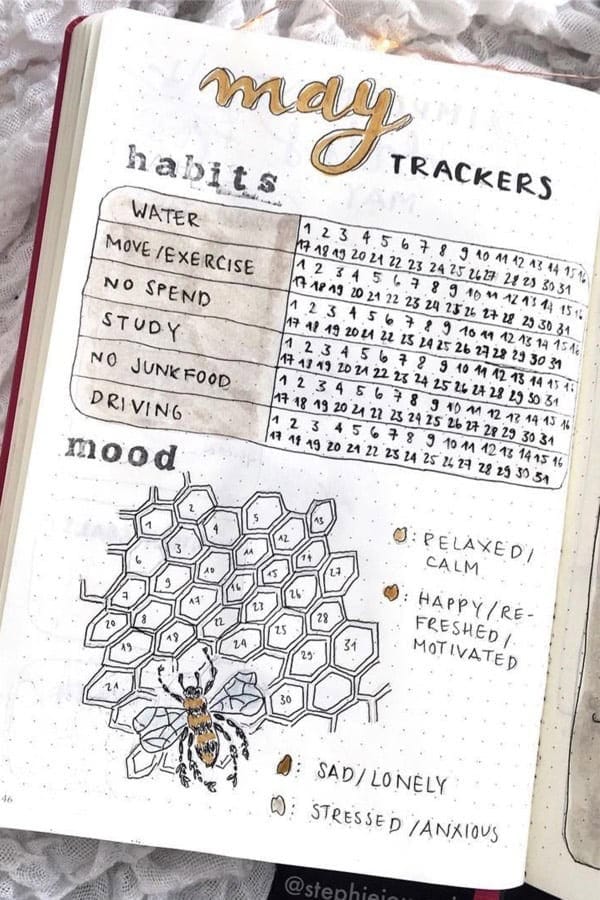 may
TRACKERS
habits
WATER
1 2 3 4 5 6 7 8 9 10 11 12 13 14 15 16
17 18 19 20 21 22 23 24 25 26 27 28 29 30 31
MOVE/EXERCISE
1 2 3 4 5 6 7 8 9 10 11 12 13 14 15 16
17 18 19 20 21 22 23 24 25 26 27 28 29 30 31
NO SPEND
1 2 3 4 5 6 7 8 9 10 11 12 13 14 15 16
17 18 19 20 21 22 23 24 25 26 27 28 29 30 31
STUDY
1 2 3 4 5 6 7 8 9 10 11 12 13 14 15
17 18 19 20 21 22 23 24 25 26 27 28 29 30 31
NO JUNKFOOD
1 2 3 4 5 6 7 8 9 10 11 12 13 14 15 16
17 18 19 20 21 22 23 24 25 26 27 28 29 30 31
DRIVING
1 2 3 4 5 6 7 8 9 10 11 12 13 14 15 16
17 18 19 20 21 22 23 24 25 26 27 28 29 30 31
mood
1
2
3
4
5
6
7
8
9
10
11
12
13
14
15
16
17
18
19
20
21
22
23
24
25
26
27
28
29
30
31
: RELAXED/
CALM
: HAPPY/RE-
FRESHED/
MOTIVATED
: SAD/LONELY
: STRESSED/ANXIOUS
46